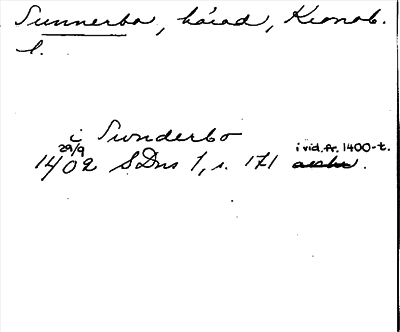 Sunnerbo, härad, Kronob.
l.
i Sunderbo
29/9
1402 SDns 1, s. 171 i vid. fr. 1400-t.